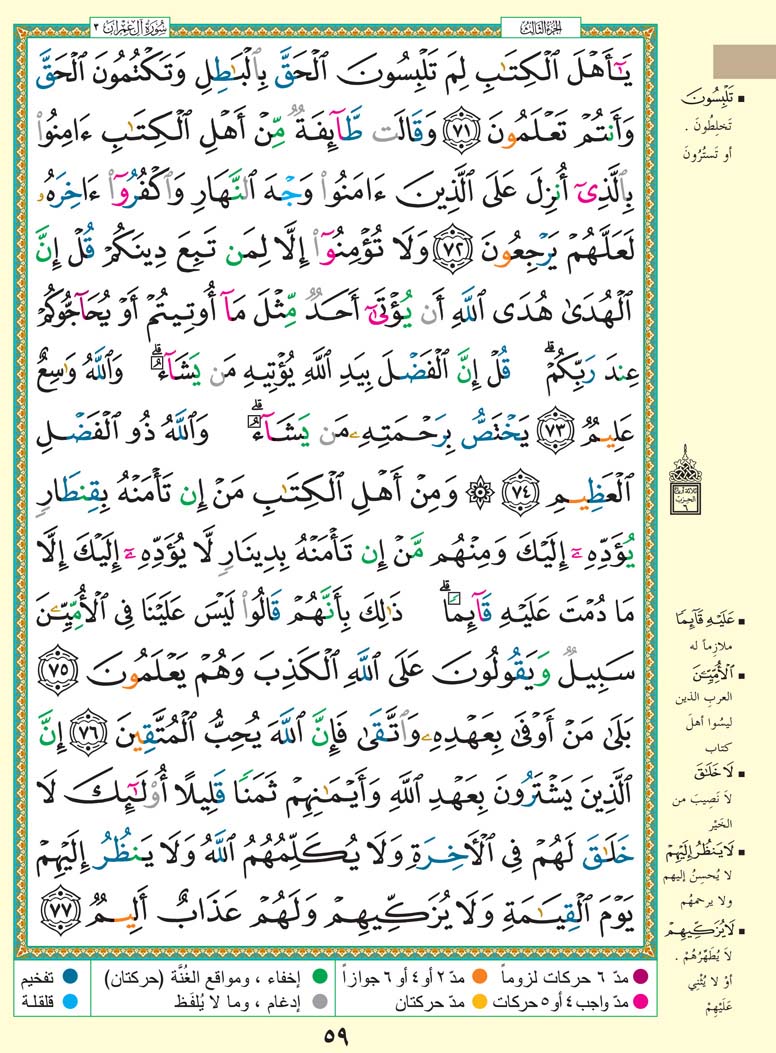 الجزء الثالث
سورة آل عمران ٣
يَـٰٓأَهْلَ ٱلْكِتَـٰبِ لِمَ تَلْبِسُونَ ٱلْحَقَّ بِٱلْبَـٰطِلِ وَتَكْتُمُونَ ٱلْحَقَّ
وَأَنتُمْ تَعْلَمُونَ ٧١ وَقَالَت طَّآئِفَةٌ مِّنْ أَهْلِ ٱلْكِتَـٰبِ ءَامِنُوا۟
بِٱلَّذِىٓ أُنزِلَ عَلَى ٱلَّذِينَ ءَامَنُوا۟ وَجْهَ ٱلنَّهَارِ وَٱكْفُرُوٓا۟ ءَاخِرَهُۥ
لَعَلَّهُمْ يَرْجِعُونَ ٧٢ وَلَا تُؤْمِنُوٓا۟ إِلَّا لِمَن تَبِعَ دِينَكُمْ قُلْ إِنَّ
ٱلْهُدَىٰ هُدَى ٱللَّهِ أَن يُؤْتَىٰٓ أَحَدٌ مِّثْلَ مَآ أُوتِيتُمْ أَوْ يُحَآجُّوكُمْ
عِندَ رَبِّكُمْ ۗ قُلْ إِنَّ ٱلْفَضْلَ بِيَدِ ٱللَّهِ يُؤْتِيهِ مَن يَشَآءُ ۗ وَٱللَّهُ وَٰسِعٌ
عَلِيمٌ ٧٣ يَخْتَصُّ بِرَحْمَتِهِۦ مَن يَشَآءُ ۗ وَٱللَّهُ ذُو ٱلْفَضْلِ
ٱلْعَظِيمِ ٧٤ ۞ وَمِنْ أَهْلِ ٱلْكِتَـٰبِ مَنْ إِن تَأْمَنْهُ بِقِنطَارٍ
يُؤَدِّهِۦٓ إِلَيْكَ وَمِنْهُم مَّنْ إِن تَأْمَنْهُ بِدِينَارٍ لَّا يُؤَدِّهِۦٓ إِلَيْكَ إِلَّا
مَا دُمْتَ عَلَيْهِ قَآئِمًا ۗ ذَٰلِكَ بِأَنَّهُمْ قَالُوا۟ لَيْسَ عَلَيْنَا فِى ٱلْأُمِّيِّـۧنَ
سَبِيلٌ وَيَقُولُونَ عَلَى ٱللَّهِ ٱلْكَذِبَ وَهُمْ يَعْلَمُونَ ٧٥
بَلَىٰ مَنْ أَوْفَىٰ بِعَهْدِهِۦ وَٱتَّقَىٰ فَإِنَّ ٱللَّهَ يُحِبُّ ٱلْمُتَّقِينَ ٧٦ إِنَّ
ٱلَّذِينَ يَشْتَرُونَ بِعَهْدِ ٱللَّهِ وَأَيْمَـٰنِهِمْ ثَمَنًا قَلِيلًا أُو۟لَـٰٓئِكَ لَا
خَلَـٰقَ لَهُمْ فِى ٱلْـَٔاخِرَةِ وَلَا يُكَلِّمُهُمُ ٱللَّهُ وَلَا يَنظُرُ إِلَيْهِمْ
يَوْمَ ٱلْقِيَـٰمَةِ وَلَا يُزَكِّيهِمْ وَلَهُمْ عَذَابٌ أَلِيمٌ ٧٧
▪ تَلْبِسُونَ
تَخلِطُونَ .
أو تَستُرُونَ
▪ عَلَيْهِ قَآئِمًا
ملازماً له
▪ ٱلْأُمِّيِّـۧنَ
العرب الذين
ليسُوا أهلَ
كتاب
▪ لَا خَلَـٰقَ
لا نَصِيبَ من
الخَيْر
▪ لَا يَنظُرُ إِلَيْهِمْ
لا يُحسِنُ إليهم
ولا يرحمُهم
▪ لَا يُزَكِّيهِمْ
لا يُطَهِّرُهُمْ .
أوْ لا يُثْنِي
عَلَيْهِمْ
مدّ ٦ حركات لزوماً
مدّ ٢ أو ٤ أو ٦ جوازاً
إخفاء ، ومواقع الغُنَّة (حركتان)
تفخيم
مدّ واجب ٤ أو ٥ حركات
مدّ حركتان
إدغام ، وما لا يُلفَظ
قلقلة
٥٩